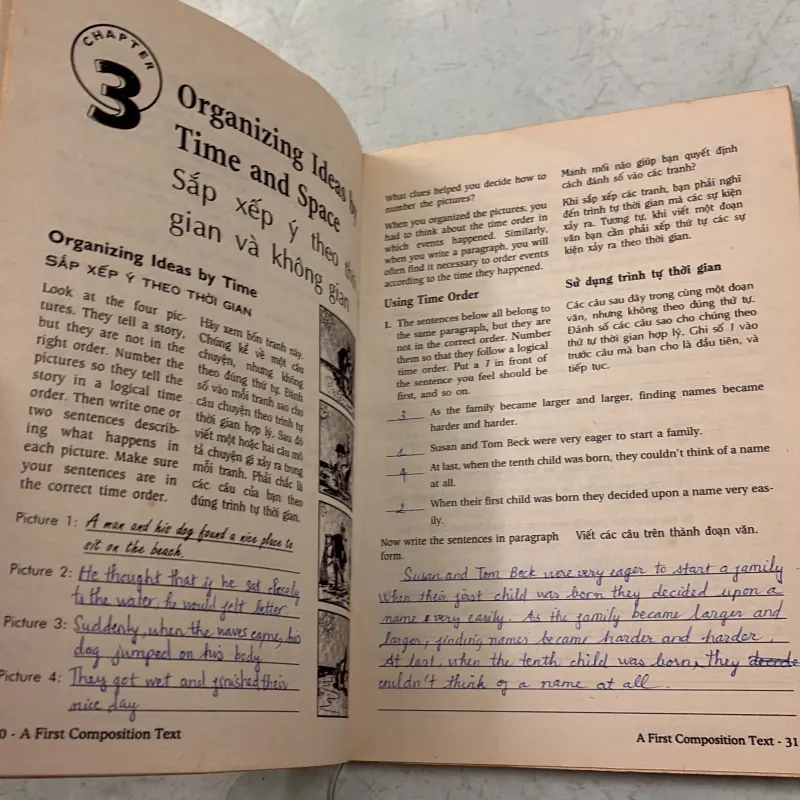 CHAPTER
3
Organizing Ideas by
Time and Space
Sắp xếp ý theo thời
gian và không gian
Organizing Ideas by Time
SẮP XẾP Ý THEO THỜI GIAN
Look at the four pic-
tures. They tell a story,
but they are not in the
right order. Number the
pictures so they tell the
story in a logical time
order. Then write one or
two sentences describ-
ing what happens in
each picture. Make sure
your sentences are in
the correct time order.
Hãy xem bốn tranh này.
Chúng kể về một câu
chuyện, nhưng không
theo đúng thứ tự. Đánh
số vào mỗi tranh sao cho
câu chuyện theo trình tự
thời gian hợp lý. Sau đó
viết một hoặc hai câu mô
tả chuyện gì xảy ra trong
mỗi tranh. Phải chắc là
các câu của bạn theo
đúng trình tự thời gian.
Picture 1: A man and his dog found a nice place to
sit on the beach.
Picture 2: He thought that if he sat closely
to the water, he would felt better.
Picture 3: Suddenly, when the waves came, his
dog jumped on his body
Picture 4: They got wet and finished their
nice day
0 - A First Composition Text
What clues helped you decide how to
number the pictures?
When you organized the pictures, you
had to think about the time order in
which events happened. Similarly,
when you write a paragraph, you will
often find it necessary to order events
according to the time they happened.
Using Time Order
1. The sentences below all belong to
the same paragraph, but they are
not in the correct order. Number
them so that they follow a logical
time order. Put a 1 in front of
the sentence you feel should be
first, and so on.
Manh mối nào giúp bạn quyết định
cách đánh số vào các tranh?
Khi sắp xếp các tranh, bạn phải nghĩ
đến trình tự thời gian mà các sự kiện
xảy ra. Tương tự, khi viết một đoạn
văn bạn cần phải xếp thứ tự các sự
kiện xảy ra theo thời gian.
Sử dụng trình tự thời gian
Các câu sau đây trong cùng một đoạn
văn, nhưng không theo đúng thứ tự.
Đánh số các câu sao cho chúng theo
thứ tự thời gian hợp lý. Ghi số 1 vào
trước câu mà bạn cho là đầu tiên, và
tiếp tục.
3 As the family became larger and larger, finding names became
harder and harder.
1 Susan and Tom Beck were very eager to start a family.
4 At last, when the tenth child was born, they couldn't think of a name
at all.
2 When their first child was born they decided upon a name very eas-
ily.
Now write the sentences in paragraph
form.
Viết các câu trên thành đoạn văn.
Susan and Tom Beck were very eager to start a family
When their first child was born they decided upon a
name very easily. As the family became larger and
larger, finding names became harder and harder.
At last, when the tenth child was born, they
couldn't think of a name at all.
A First Composition Text - 31